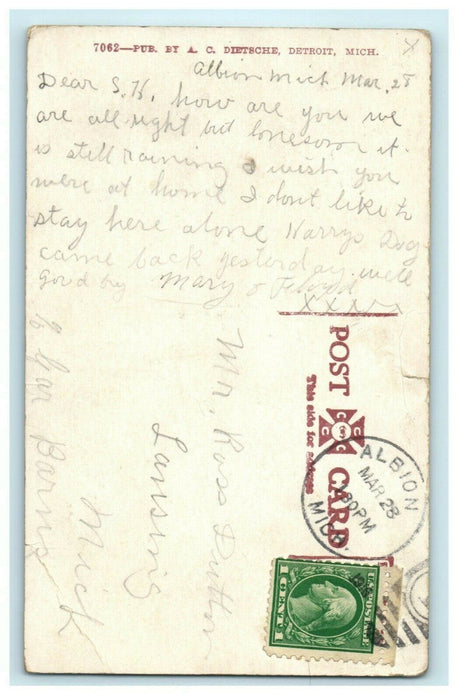 7062—PUB. BY A. C. DIETSCHE, DETROIT, MICH.
Albion Mich Mar. 28
Dear S. H, how are you we
are all right but lonesom it
is still raining I wish you
were at home I dont like to
stay here alone Harrys Dog
came back yesterday well
Good by Mary & Floyd
XXXX
POST CARD
This side for address
ALBION
MAR 28
PM
MICH
U.S. POSTAGE
1 CENT 1
Mr. Ross Dutton
Lansing
Mich
Car Barns